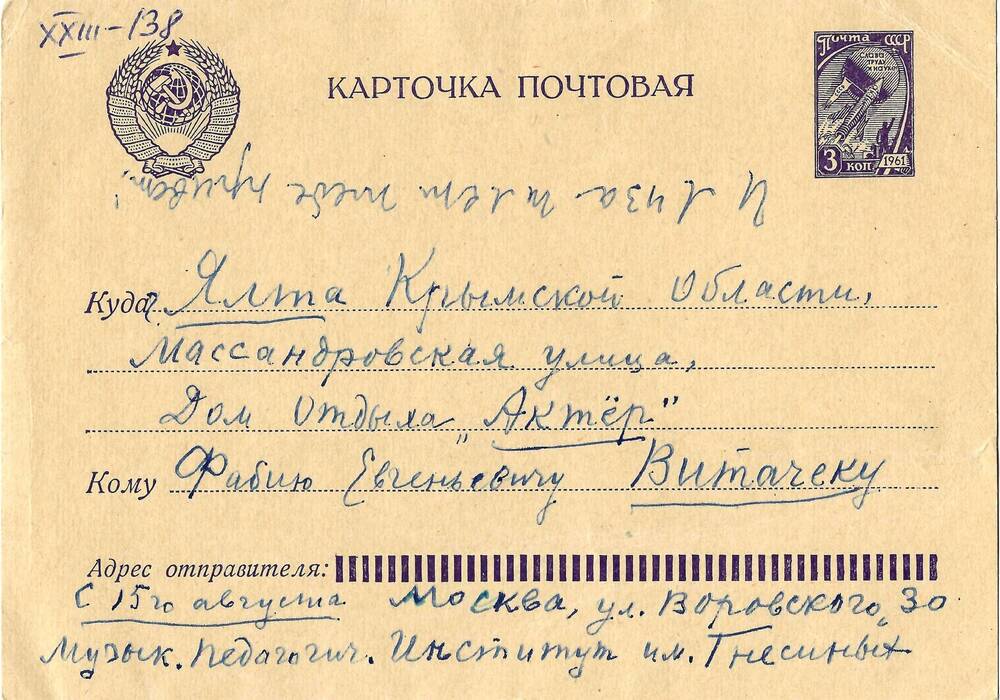 XXIII-138
КАРТОЧКА ПОЧТОВАЯ
Почта СССР
СЛАВА
ТРУДУ
И НАУКЕ
3 коп
1961
И Лиза шлёт тебе привет!
Куда г. Ялта Крымской Области,
Массандровская улица,
Дом Отдыха „Актёр"
Кому Фабию Евгеньевичу Витачеку
Адрес отправителя:
С 15го августа Москва, ул. Воровского, 30
Музык. Педагогич. Институт им. Гнесиных